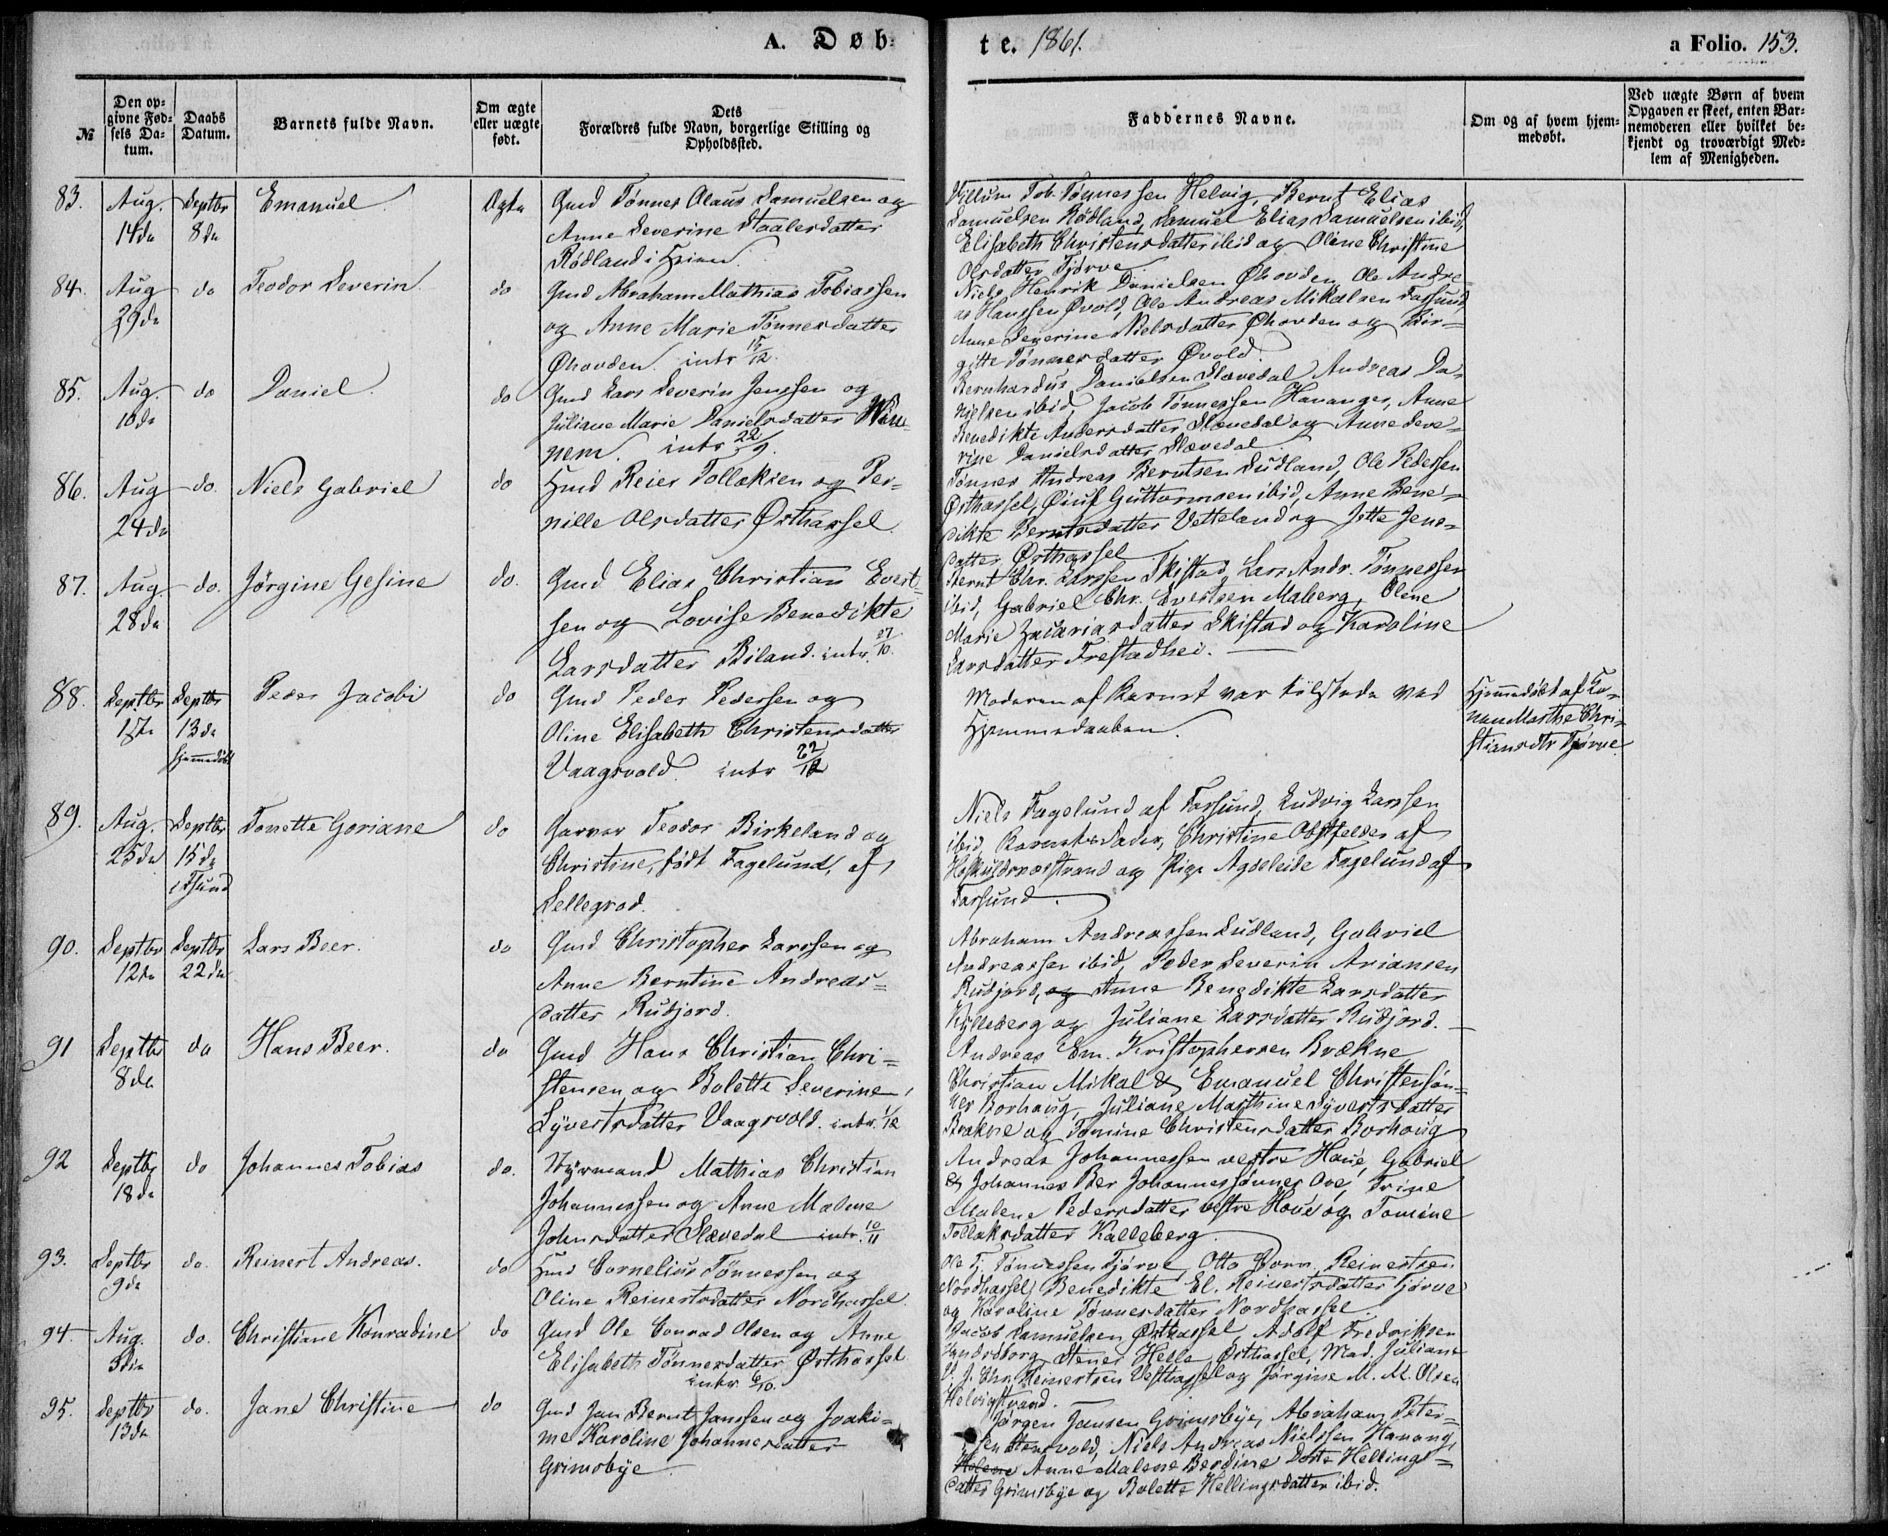 A. Døb-
te. 1861.
a Folio. 153.
№
Den op-
givne Fød-
sels Da-
tum.
Daabs
Datum.
Barnets fulde Navn.
Om ægte
eller uægte
født.
Dets
Forældres fulde Navn, borgerlige Stilling og
Opholdssted.
Faddernes Navne.
Om og af hvem hjem-
medøbt.
Ved uægte Børn af hvem
Opgaven er skeet, enten Bar-
nemoderen eller hvilket be-
kjendt og troværdigt Med-
lem af Menigheden.
83.
Aug.
14de
Septbr
8de
Emanuel
Ægte
Gmd Tønnes Olaus Samuelsen og
Anne Severine Staalesdatter
Rødland i Heien.
Villum Tob. Tønnessen Helvig, Bernt Elias
Samuelsen Rødland, Samuel Elias Samuelsen ibid,
Elisabeth Christensdatter ibid og Oline Christine
Olsdatter Tjørve
84.
Aug
29de
do
Teodor Severin
do
Gmd Abraham Mathias Tobiassen
og Anne Marie Tønnesdatter
Øhovden. intr 15/12.
Niels Henrik Danielsen Øhovden, Ole Andre-
as Hanssen Øvold, Ole Andreas Mikalsen Farsund,
Anne Severine Nielsdatter Øhovden og Bir-
gitte Tønnesdatter Øvold.
85.
Aug.
10de
do
Daniel
do
Gmd Lars Severin Jenssen og
Juliane Marie Danielsdatter
nem. intr 22/9.
Bernhardus Danielsen Slævedal, Andreas Da-
nielsen ibid, Jacob Tønnessen Havanger, Anne
Benedikte Andersdatter Slævedal og Anne Seve-
rine Danielsdatter Slævedal.
86.
Aug
24de
do.
Niels Gabriel
do
Hmd Reier Tollaksen og Per-
nille Olsdatter Østhassel
Tønnes Andreas Berntsen Ludland, Ole Pedersen
Østhassel, Guttormsen ibid, Anne Bene-
dikte Berntsdatter Vetteland og Jette Jens-
datter Østhassel
87.
Aug
28de
do.
Jørgine Gesine
do.
Gmd Elias Christian Evert-
sen og Lovise Benedikte
Larsdatter Biland. intr. 27/10.
Bernt Chr. Larssen Skistad, Lars Andr. Tønnessen
ibid, Gabriel Chr. Evertsen Maberg, Oline
Marie Zacariasdatter Skistad og Karoline
Larsdatter Frestadhei.
88.
Septbr
Septbr
13de
hjemmedøbt
Peder Jacobi
do
Gmd Peder Pedersen og
Oline Elisabeth Christensdatter
Vaagsvold. intr 22/12
Moderen af Barnet var tilstede ved
Hjemmedaaben.
Hjemmedøbt af Ko-
nen Marthe Chri-
stiansdtr Tjørve.
89.
Aug.
25de
Septbr
15de
i Fsund
Tonette Goriane
do
Garver Teodor Birkeland og
Christine, født Fagelund, af
Sellegrod.
Niels Fagelund af Farsund, Ludvig Larssen
ibid, Barnets Fader, Christine Obstfelder af
Høskuldsværstrand og Pige Agdeleide Fagelund af
Farsund
90.
Septbr
12de
Septbr
22de
Lars Beer.
do
Gmd Christopher Larssen og
Anne Berntine Andreas-
datter Rudjord.
Abraham Andreassen Ludland, Gabriel
Andreassen ibid, Peder Severin Ariansen
Rudjord, og Anne Benedikte Larsdatter
Kalleberg og Juliane Larsdatter Rudjord.
91
Septbr
8de
do
Hans Beer.
do
Gmd Hans Christian Chri-
stensen og Bolette Severine
Syvertsdatter Vaagsvold. intr. 1/12
Andreas Em. Kristophersen Brækne
Christian Mikal & Emanuel Christensøn-
ner Borhaug, Juliane Marthine Syvertsdatter
Brækne og Tomine Christensdatter Borhaug
92
Septbr
18de
do
Johannes Tobias
do.
Styrmand Mathias Christian
Johannessen og Anne Malene
Johnsdatter Slævedal intr. 10/11
Andreas Johannessen vestre Haue, Gabriel
& Johannes Ber Johannessønner Ore, Trine
Malene Pedersdatter vestre Haue og Tomine
Tollaksdatter Kalleberg
93.
Septbr
9de
do.
Reinert Andreas.
do
Hmd Cornelius Tønnessen og
Oline Reinertsdatter Nordhassel.
Ole T. Tønnessen Tjørve, Otto Reinertsen
Nordhassel, Benedikte El. Reinertsdatter Tjørve
og Karoline Tønnesdatter Nordhassel.
94.
Aug.
do.
Christiane Konradine
do
Gmd Ole Conrad Olsen og Anne
Elisabeth Tønnesdatter Østhassel
intr. 6/10.
Jacob Samuelsen Østhassel, Adolf Fredriksen
Stener Helle Østhassel, Mad. Juliane
Reinertsen Vesthassel og Jørgine M. M. Olsen
Helvigstrand.
95.
Septbr
13de
do.
Jane Christine
do
Gmd Jan Bernt Janssen og Joaki-
me Karoline Johannesdatter
Grimsbye
Jørgen Jansen Grimsbye, Abraham Peter-
Niels Andreas Nielssen Havang,
Anne Malene Berdine Dorte Hellings-
datter Grimsbye og Bolette Hellingsdatter ibid.